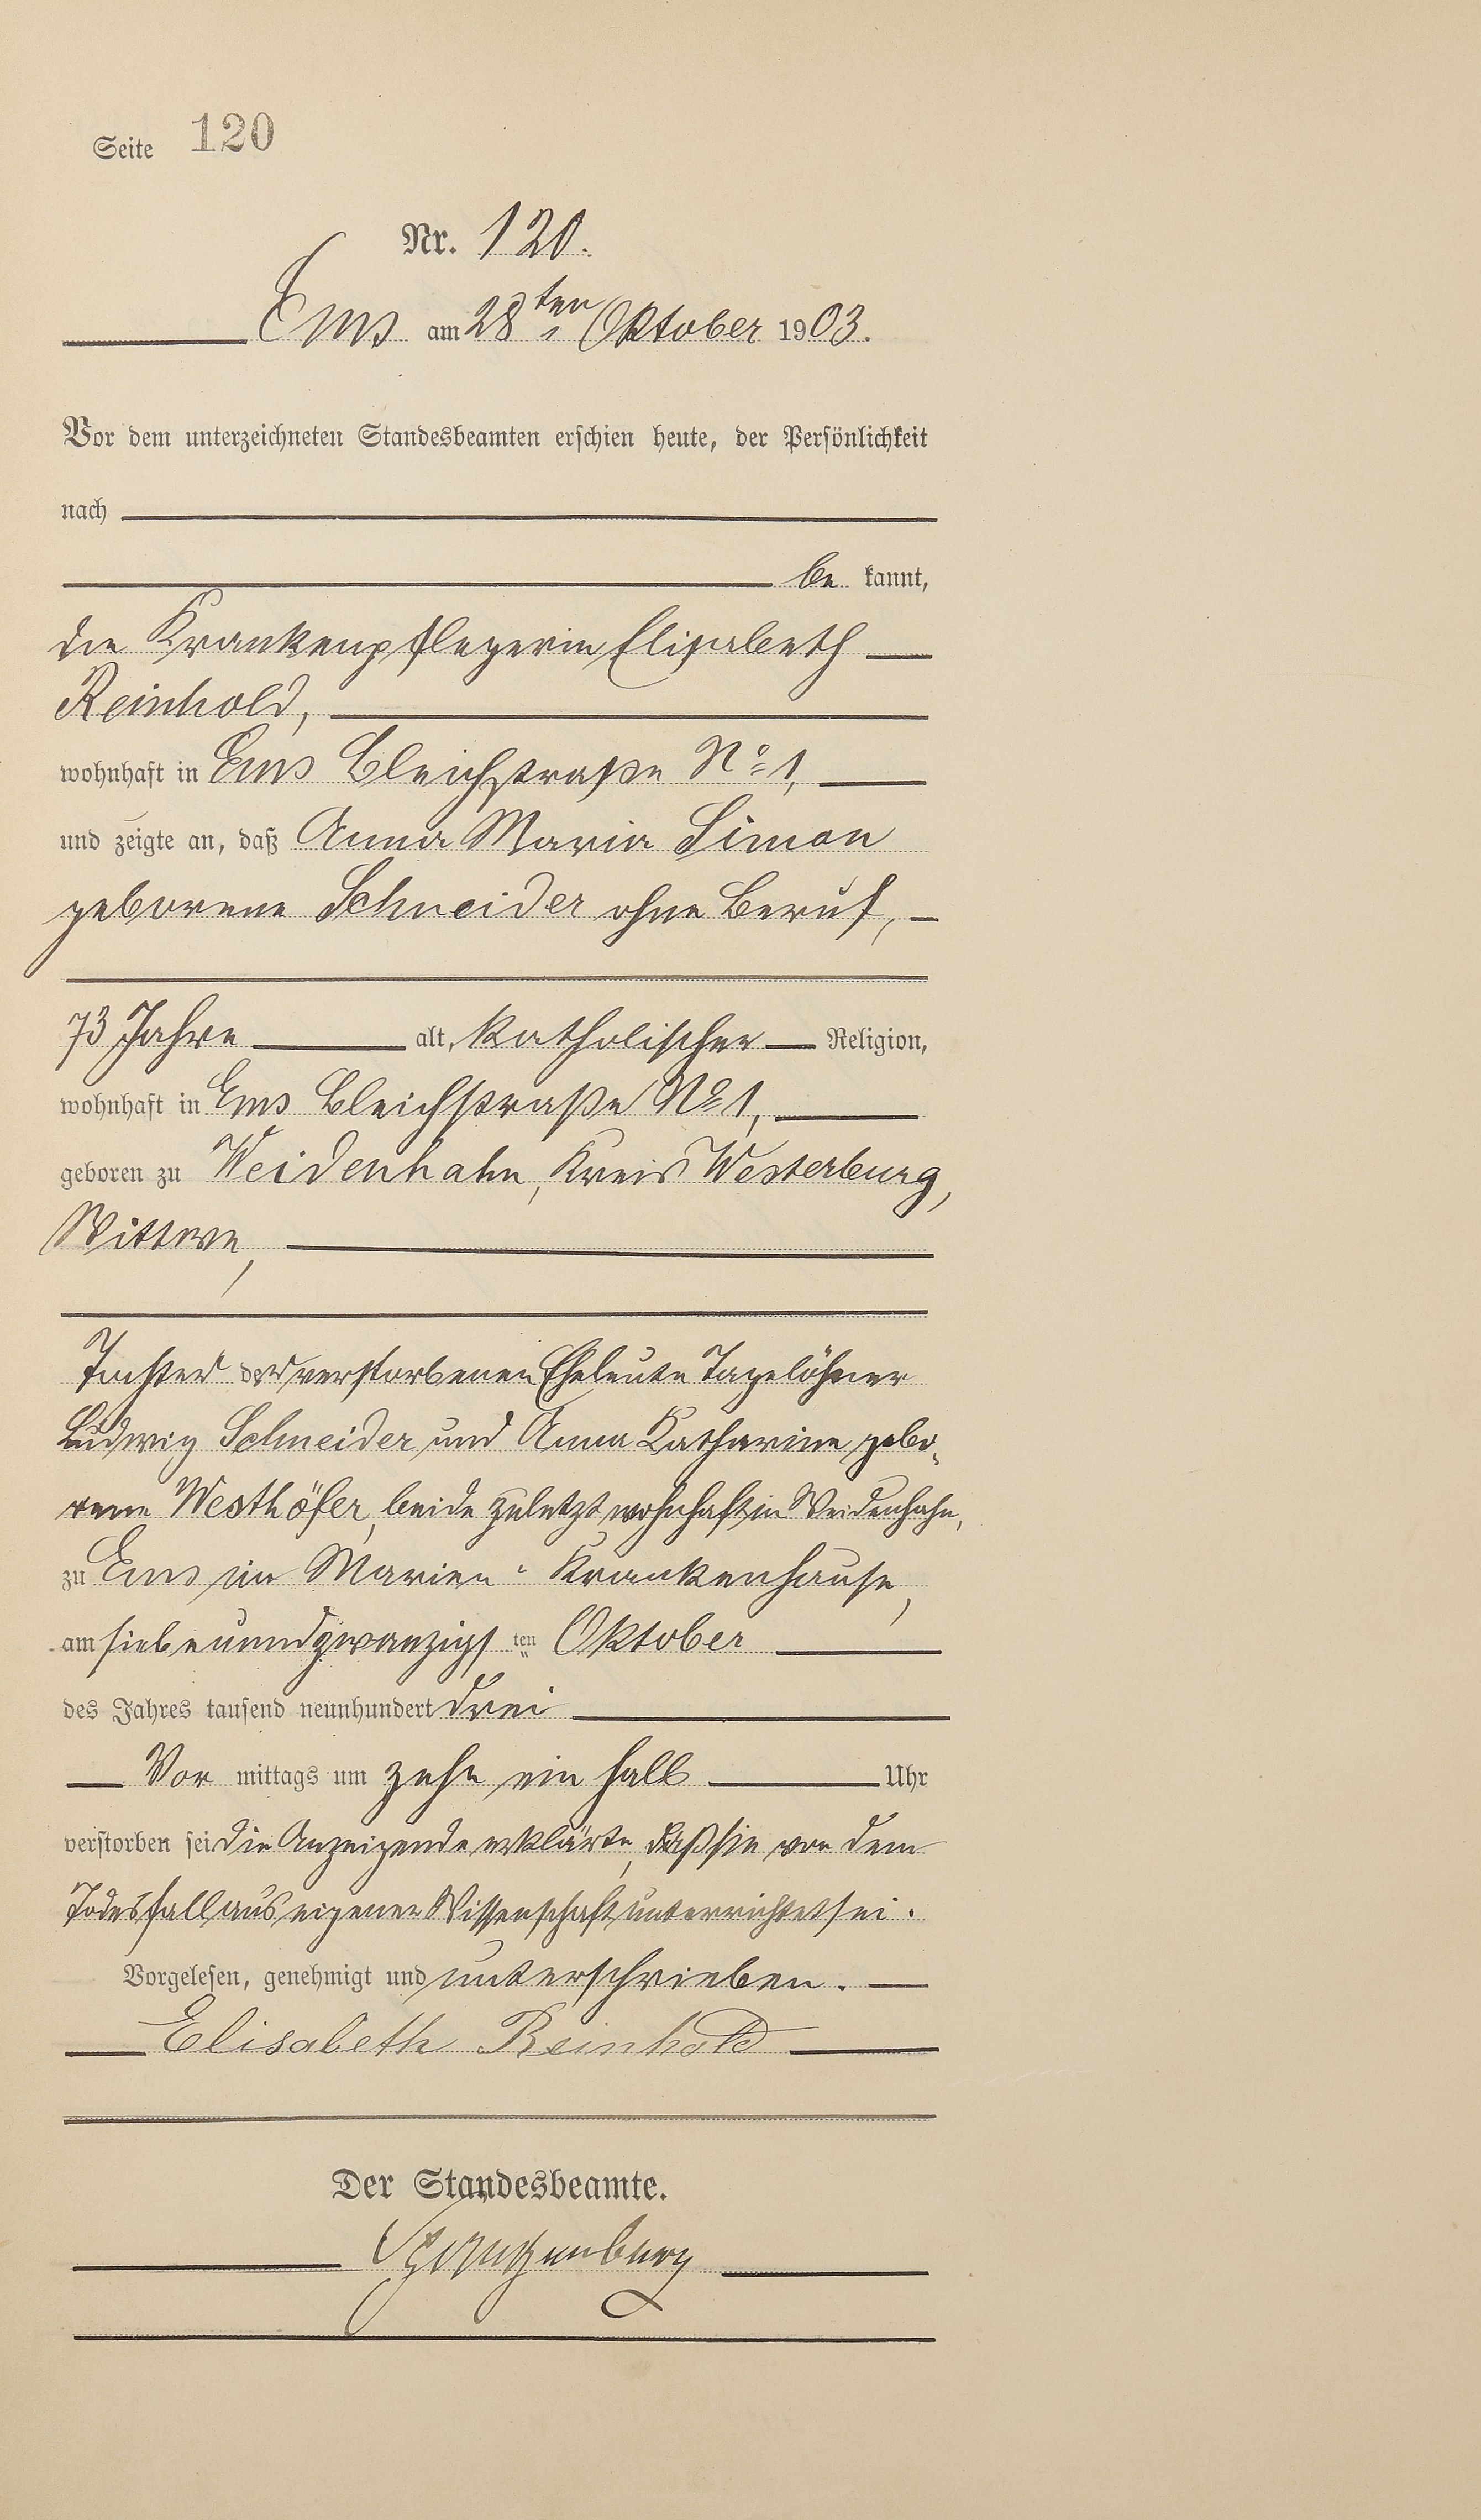 Seite 120
Nr. 120.
Ems am 28ten Oktober 1903.
Vor dem unterzeichneten Standesbeamten erschien heute, der Persönlichkeit
nach
be kannt,
die Krankenpflegerin Elisabeth
Reinhold,
wohnhaft in Ems Bleichstraße No 1,
und zeigte an, daß Anna Maria Simon
geborene Schneider ohne Beruf,
73 Jahre alt, katholischer Religion,
wohnhaft in Ems Bleichstraße No 1,
geboren zu Weidenhahn, Kreis Westerburg,
Wittwe,
Tochter der verstorbenen Eheleute Tagelöhner
Ludwig Schneider und Anna Katharine gebo-
rene Westhöfer, beide zuletzt wohnhaft in Weidenhahn,
zu Ems im Marien-Krankenhause,
am siebenundzwanzigsten Oktober
des Jahres tausend neunhundert drei
Vor mittags um zehn ein halb Uhr
verstorben sei. Die Anzeigende erklärte, daß sie von dem
Todesfall aus eigener Wissenschaft unterrichtet sei.
Vorgelesen, genehmigt und unterschrieben.
Elisabeth Reinhold
Der Standesbeamte.